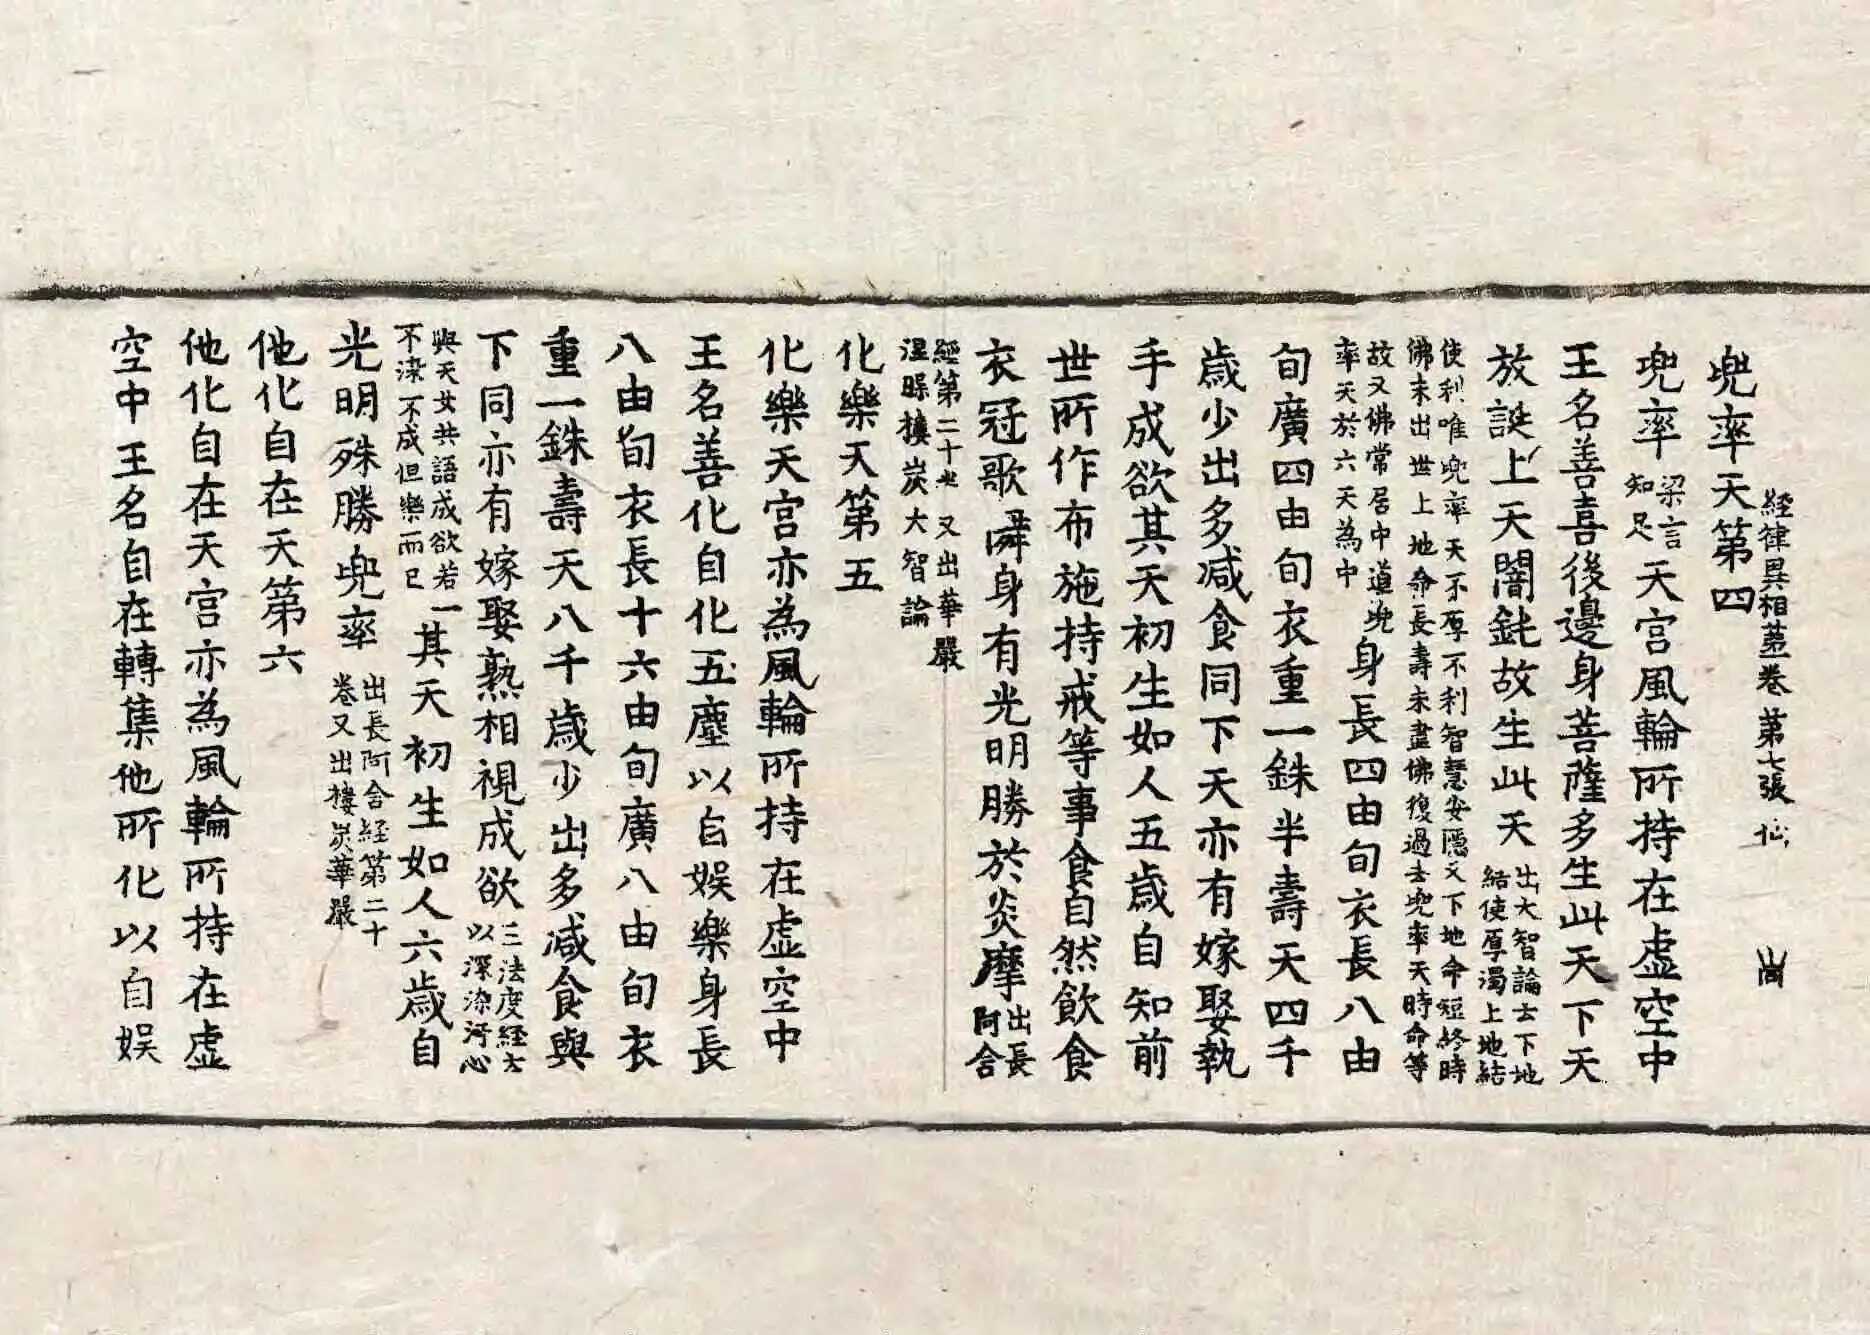 経律異相苐一卷 第七張 仙
兜率天第四
兜率梁言知足天宮風輪所持在虛空中
王名善喜後邊身菩薩多生此天下天
放誕上天闇鈍故生此天出大智論云下地結使厚濁上地結
使利唯兜率天不厚不利智慧安隱又下地命短終時
佛未出世上地命長壽未盡佛復過去兜率天時命等
故又佛常居中道兜率天於六天為中身長四由旬衣長八由
旬廣四由旬衣重一銖半壽天四千
歲少出多減食同下天亦有嫁娶執
手成欲其天初生如人五歲自知前
世所作布施持戒等事食自然飲食
衣冠歌舞身有光明勝於炎摩出長阿含
經第二十 又出華嚴
涅槃樓炭大智論
化樂天第五
化樂天宮亦為風輪所持在虛空中
王名善化自化五塵以自娛樂身長
八由旬衣長十六由旬廣八由旬衣
重一銖壽天八千歲少出多減食與
下同亦有嫁娶熟相視成欲三法度經云以深染污心
與天女共語成欲若一不染不成但樂而已其天初生如人六歲自
光明殊勝兜率出長阿含経第二十卷又出樓炭華嚴
他化自在天第六
他化自在天宮亦為風輪所持在虛
空中王名自在轉集他所化以自娛